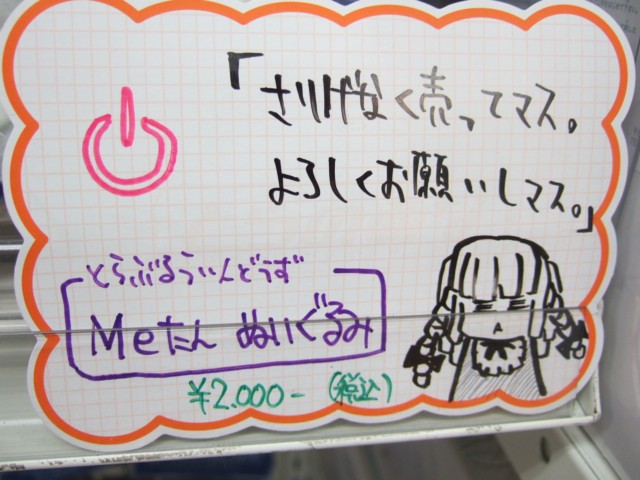 「さりげなく売ってマス。
よろしくお願いしマス。」
とらぶるうぃんどうず
Meたん ぬいぐるみ
¥2.000-(税込)